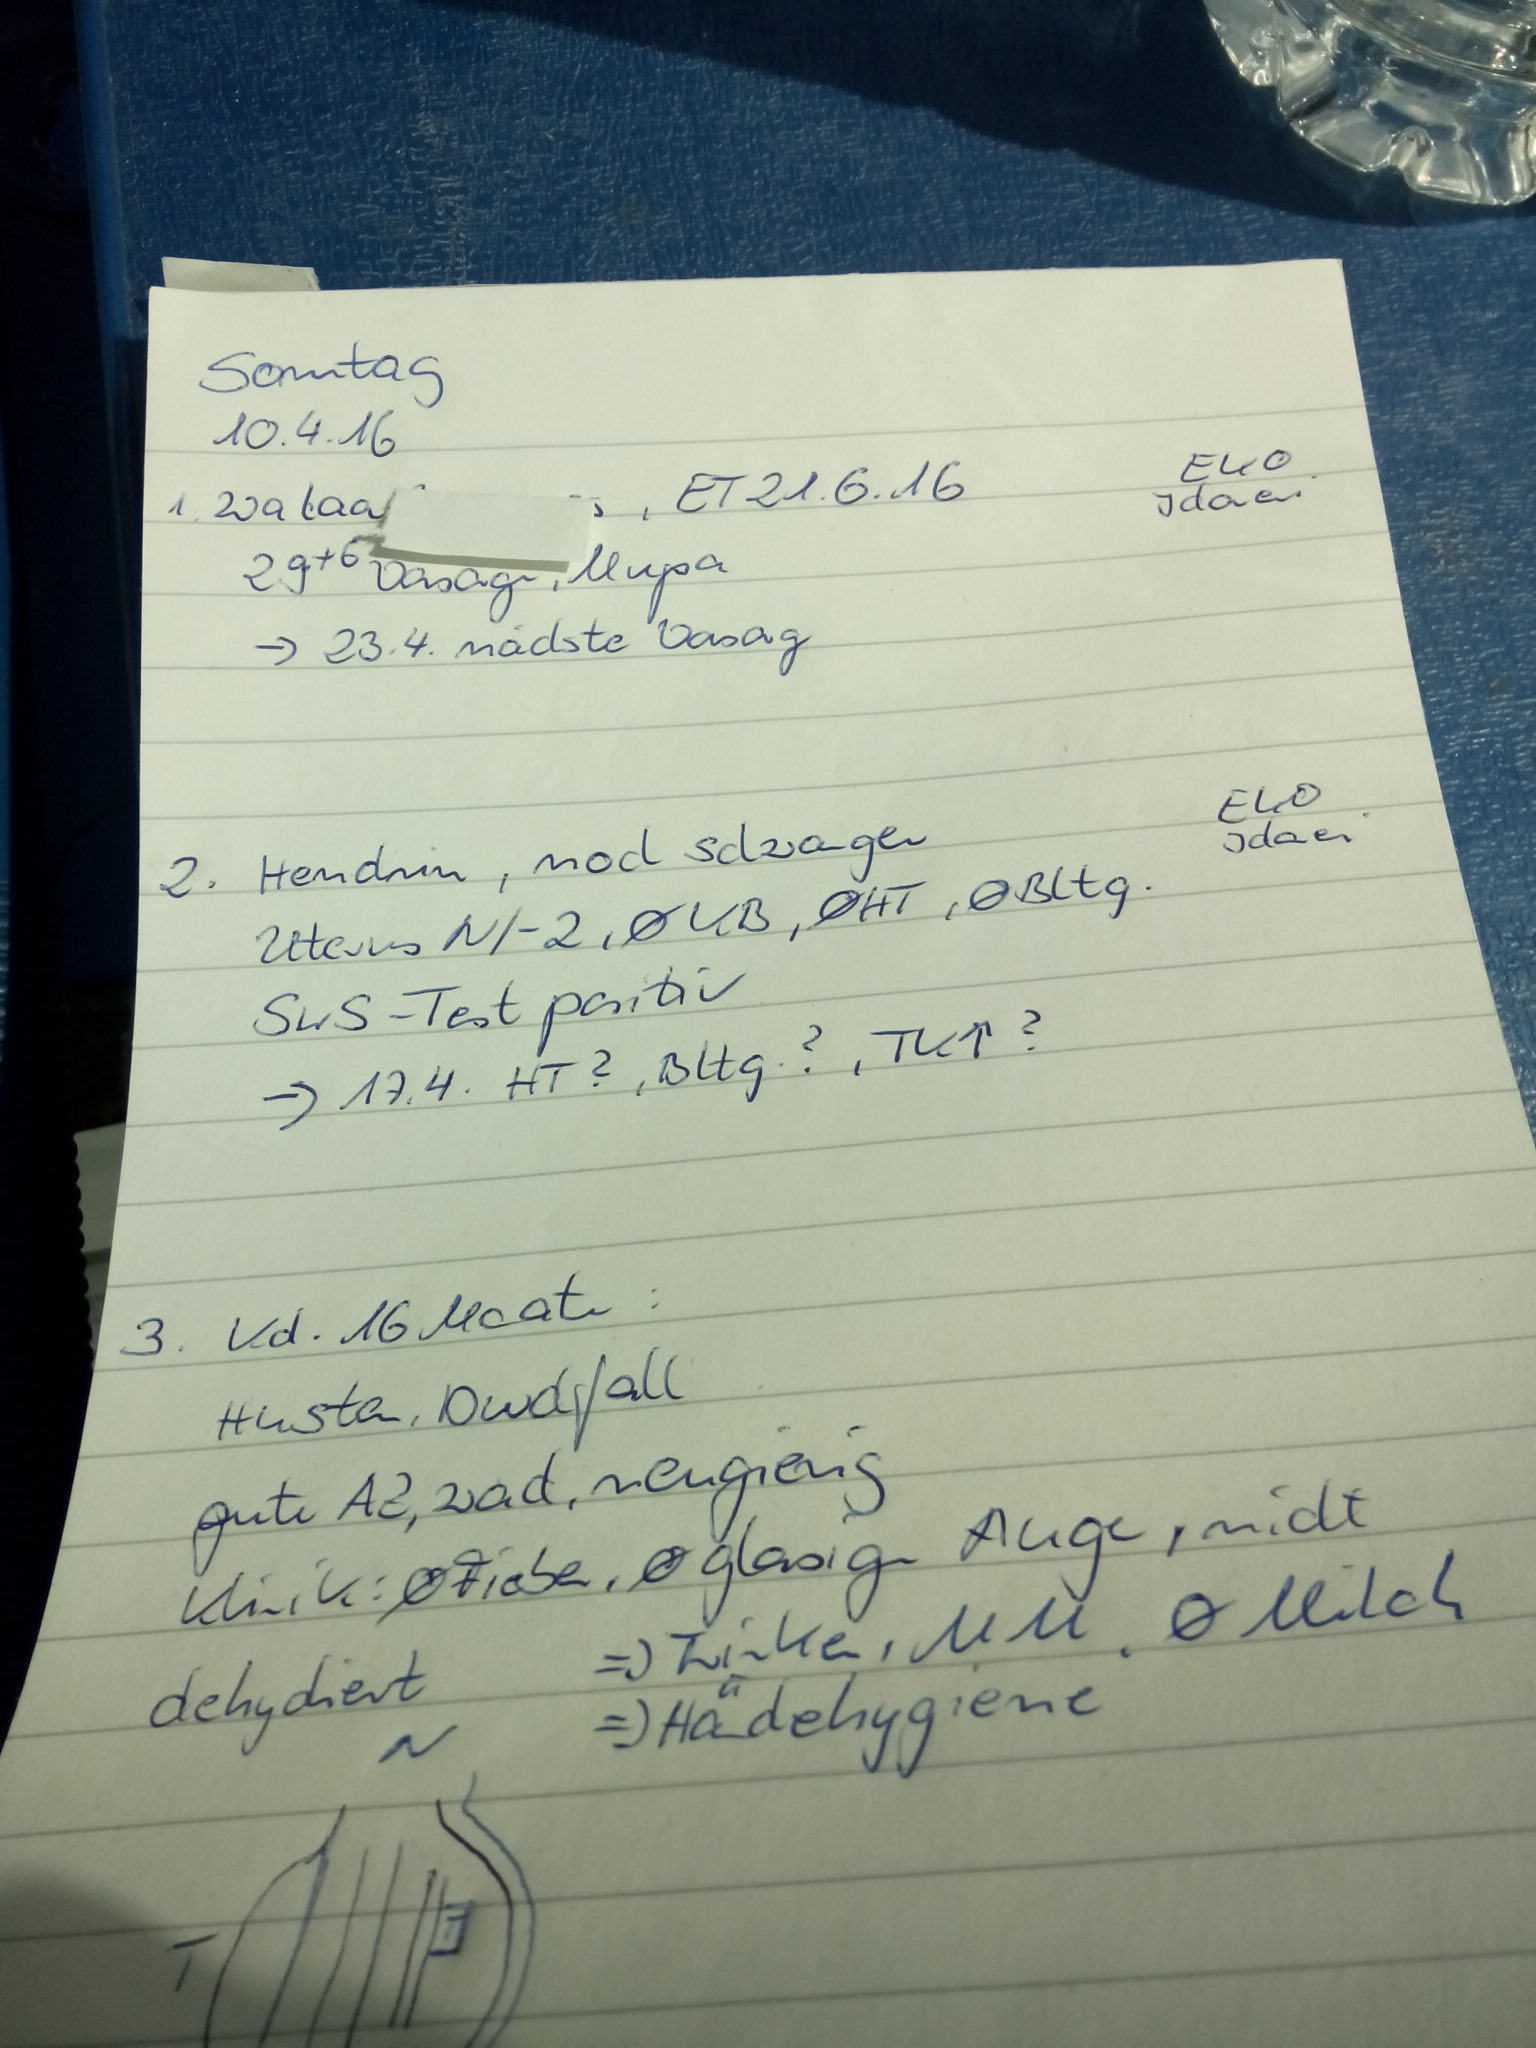 Sonntag
10.4.16
1. , ET 21.6.16
EKO
Idaei
29+6 Vorsorge, Mupa
→ 23.4. nächste Vorsorg
2. Hendrin, noch schwanger
EKO
Idaei
Uterus N/-2, ØKB, ØHT, ØBltg.
SwS-Test positiv
→ 17.4. HT?, Bltg.?, TK↑?
3. Kd. 16 Monate:
Husten, Durchfall
gute AZ, wach, neugierig
Klinik: ØFieber, Øglasige Auge, nicht
dehydiert
⇒ Trinken, MM, Ø Milch
⇒ Händehygiene
N
T